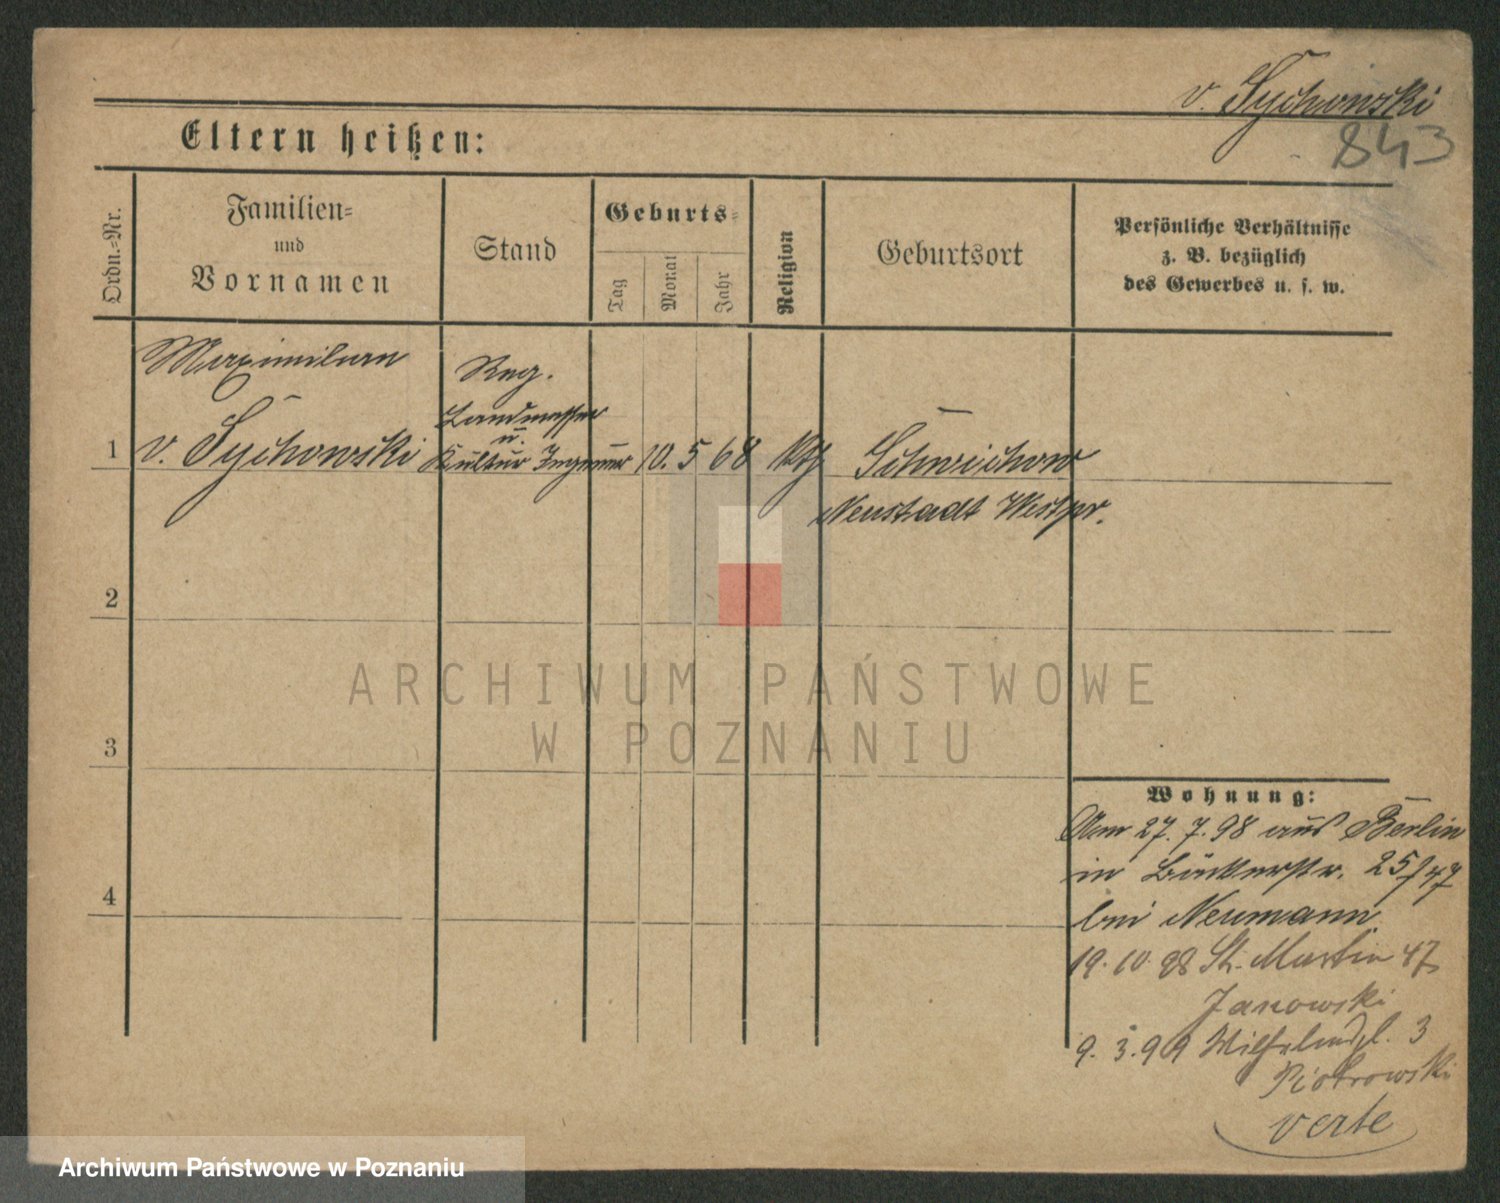 v. Sychowski
843
Eltern heißen:
Ordn.=Nr.
Familien=
und
Vornamen
Stand
Geburts=
Tag
Monat
Jahr
Religion
Geburtsort
Persönliche Verhältnisse
z. B. bezüglich
des Gewerbes u. s. w.
Maximilian
Reg.
Landmesser
u.
1 v. Sychowski Kultur Ingenieur 10. 5 68 kth Schwichow
Neustadt Westpr.
2
ARCHIWUM PAŃSTWOWE
W POZNANIU
3
Wohnung:
Am 27. 7. 98 aus Berlin
in Bäckerstr. 25
4
bei Neumann
19. 10. 98 St. Martin 47
Janowski
9. 3. 99 Wilhelmspl. 3
Piotrowski
verte
Archiwum Państwowe w Poznaniu